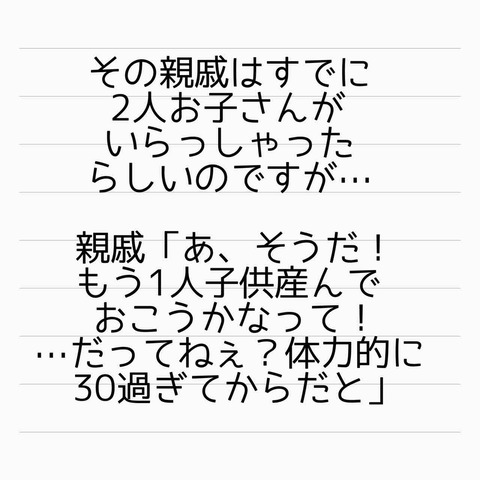 その親戚はすでに
2人お子さんが
いらっしゃった
らしいのですが…
親戚「あ、そうだ！
もう1人子供産んで
おこうかなって！
…だってねぇ？体力的に
30過ぎてからだと」